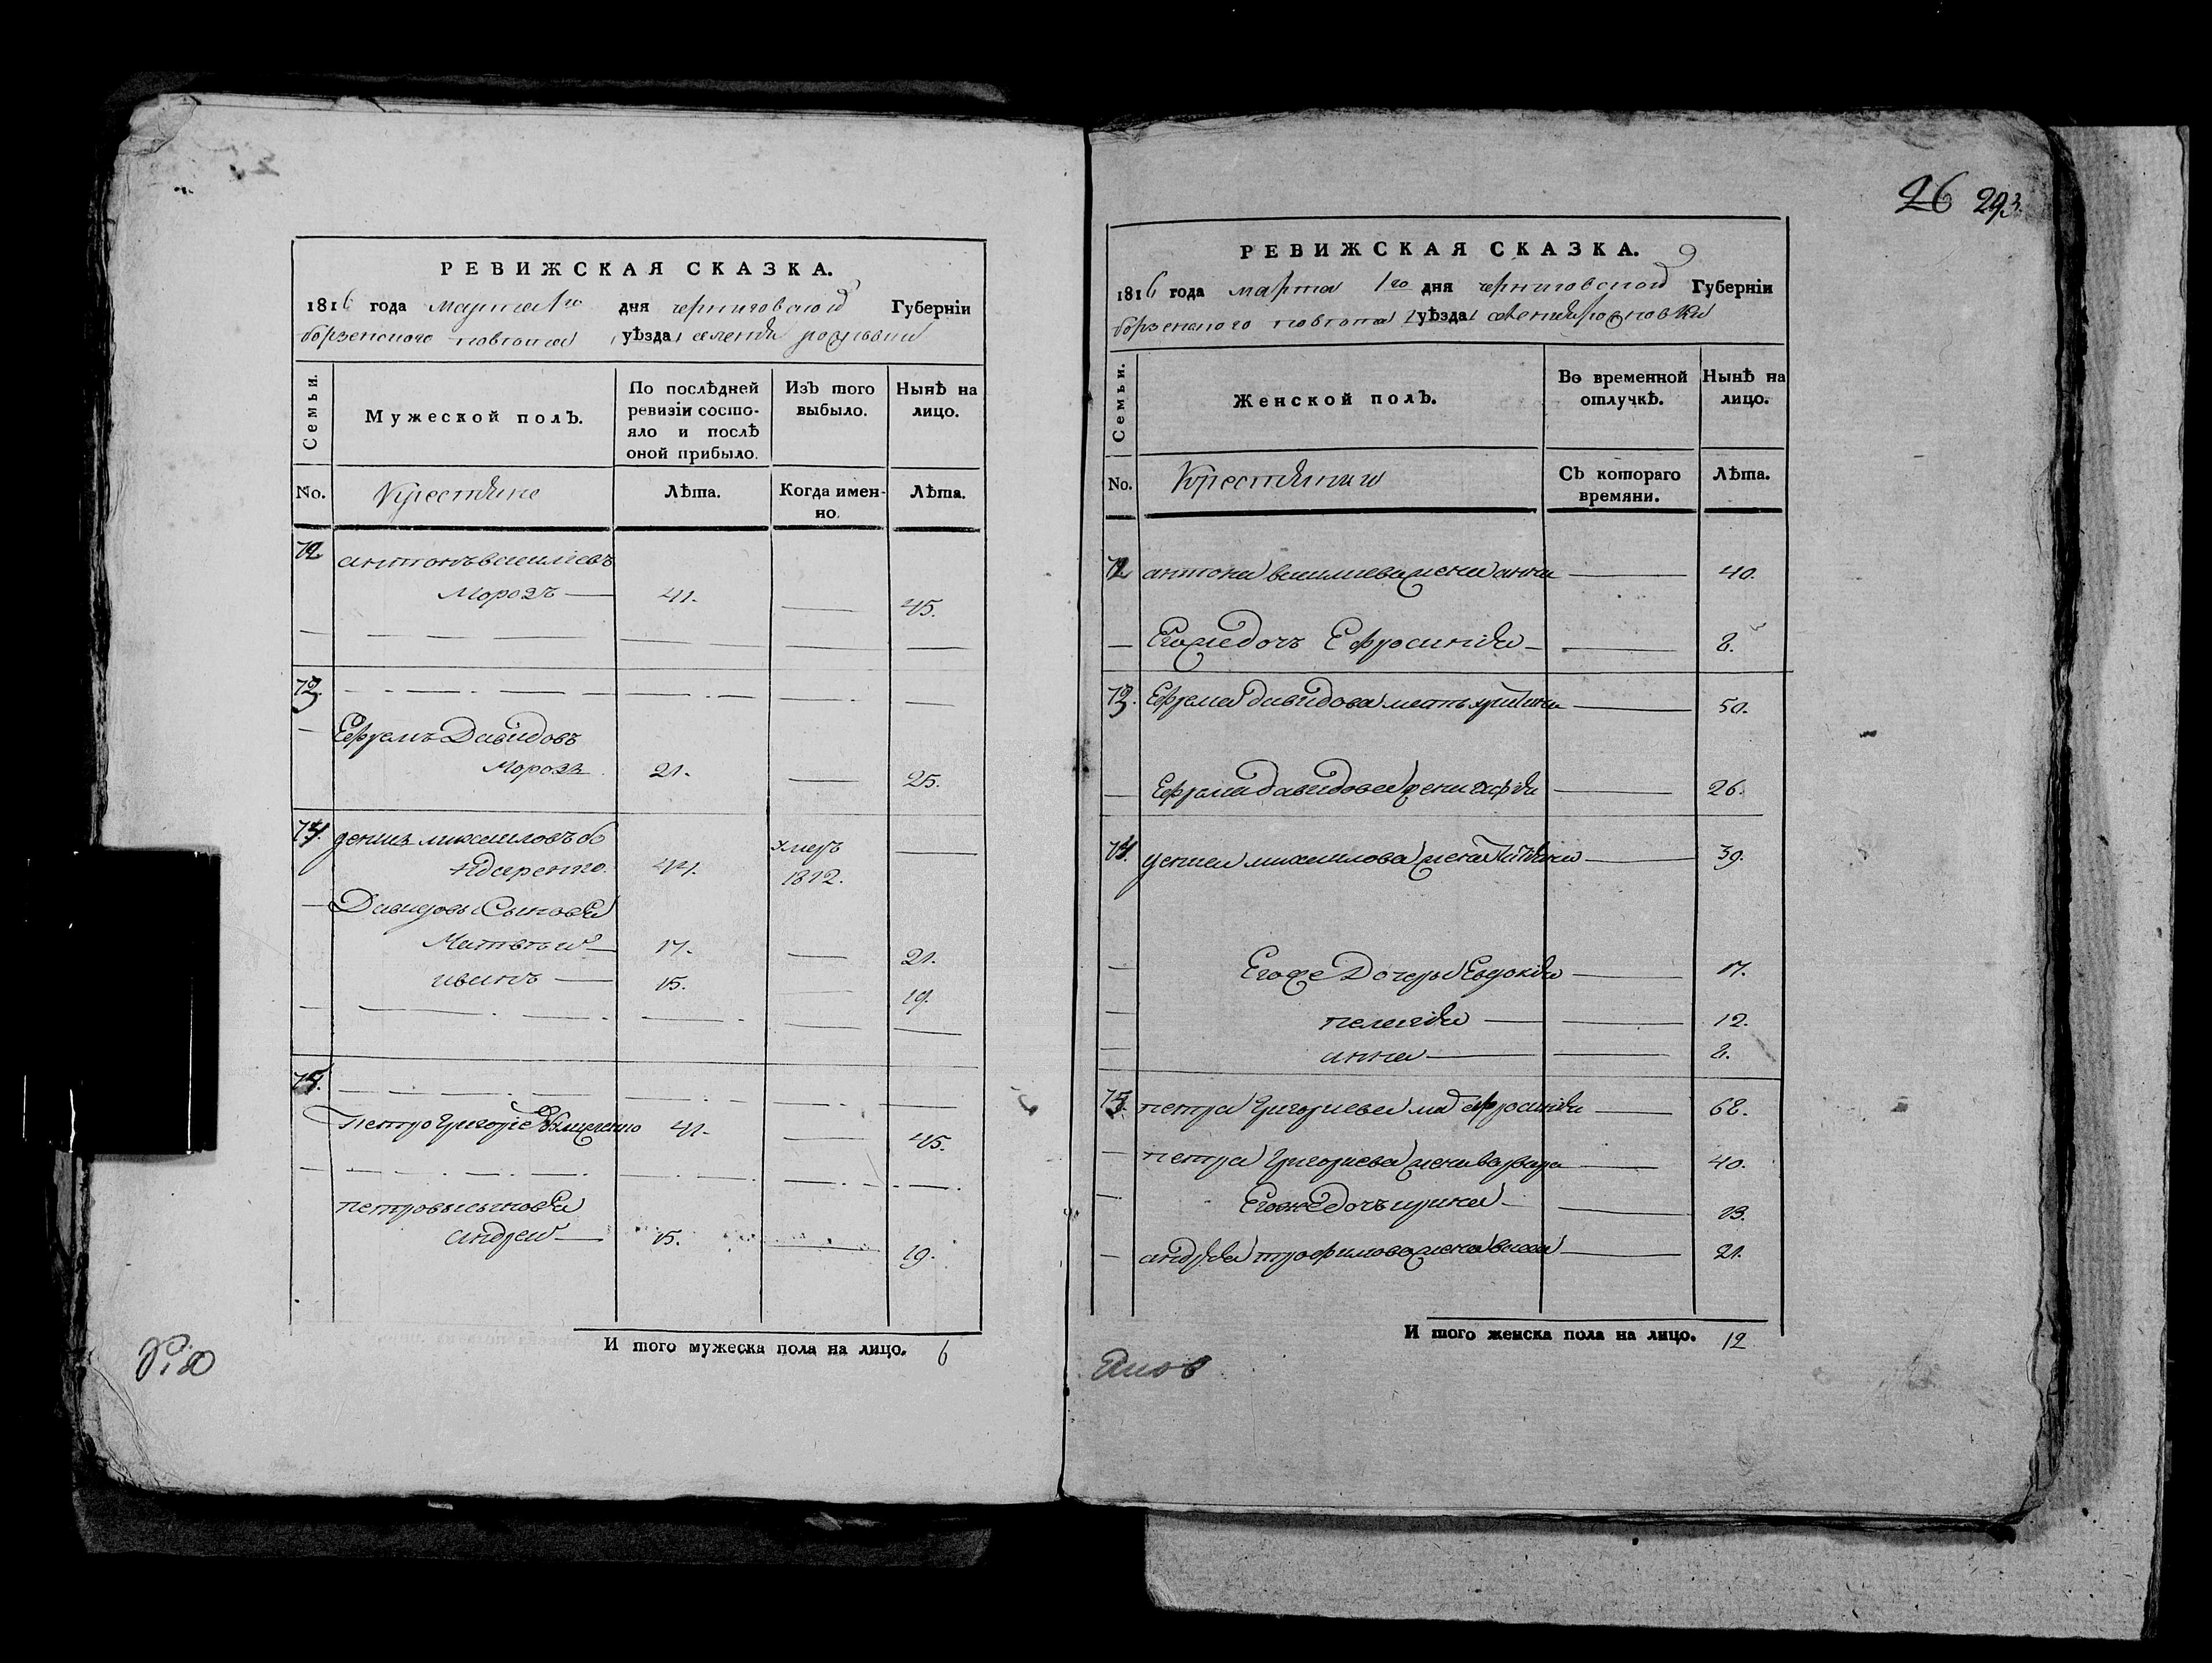 РЕВИЖСКАЯ СКАЗКА.
1816 года марта 1го дня черниговской Губернiи
борзенского повгота уѣзда селения
Семьи.
Мужеской полъ.
По послѣдней ревизiи состояло и послѣ оной прибыло.
Изъ того выбыло.
Нынѣ на лицо.
No.
Крестяне
Лѣта.
Когда именно.
Лѣта.
72 антонъ василиевъ
Морозъ — 41. — 45.
73.
Ефремъ Давидовъ
Морозъ 21. — 25.
74. михаиловъ бо
ндаренко. 44. умеръ 1812. —
Сыновя
Матвѣй — 17. — 21.
иванъ — 15. — 19.
75.
Петро Григорiе 41. — 45.
петровы сыновя
андрей — 15. — 19.
И того мужеска пола на лицо. 6
26 293.
РЕВИЖСКАЯ СКАЗКА.
1816 года марта 1го дня черниговской Губернiи
борзенского повгота уѣзда селения
Семьи.
Женской полъ.
Во временной отлучкѣ.
Нынѣ на лицо.
No.
Съ котораго времяни.
Лѣта.
72 антона василиева жена анна — 40.
Егожедочъ Ефросиния — 8.
73. Ефрема давидова мать — 50.
Ефрема давидова жена — 26.
74. михаилова жена — 39.
Егоже Дочеры Евдокия — 17.
пелагия — 12.
анна — 8.
75. петра григориева ма ефросиния — 68.
петра григориева жена варвара — 40.
Егожедочъ ирина — 13.
андрея трофимова жена васса — 21.
И того женска пола на лицо. 12